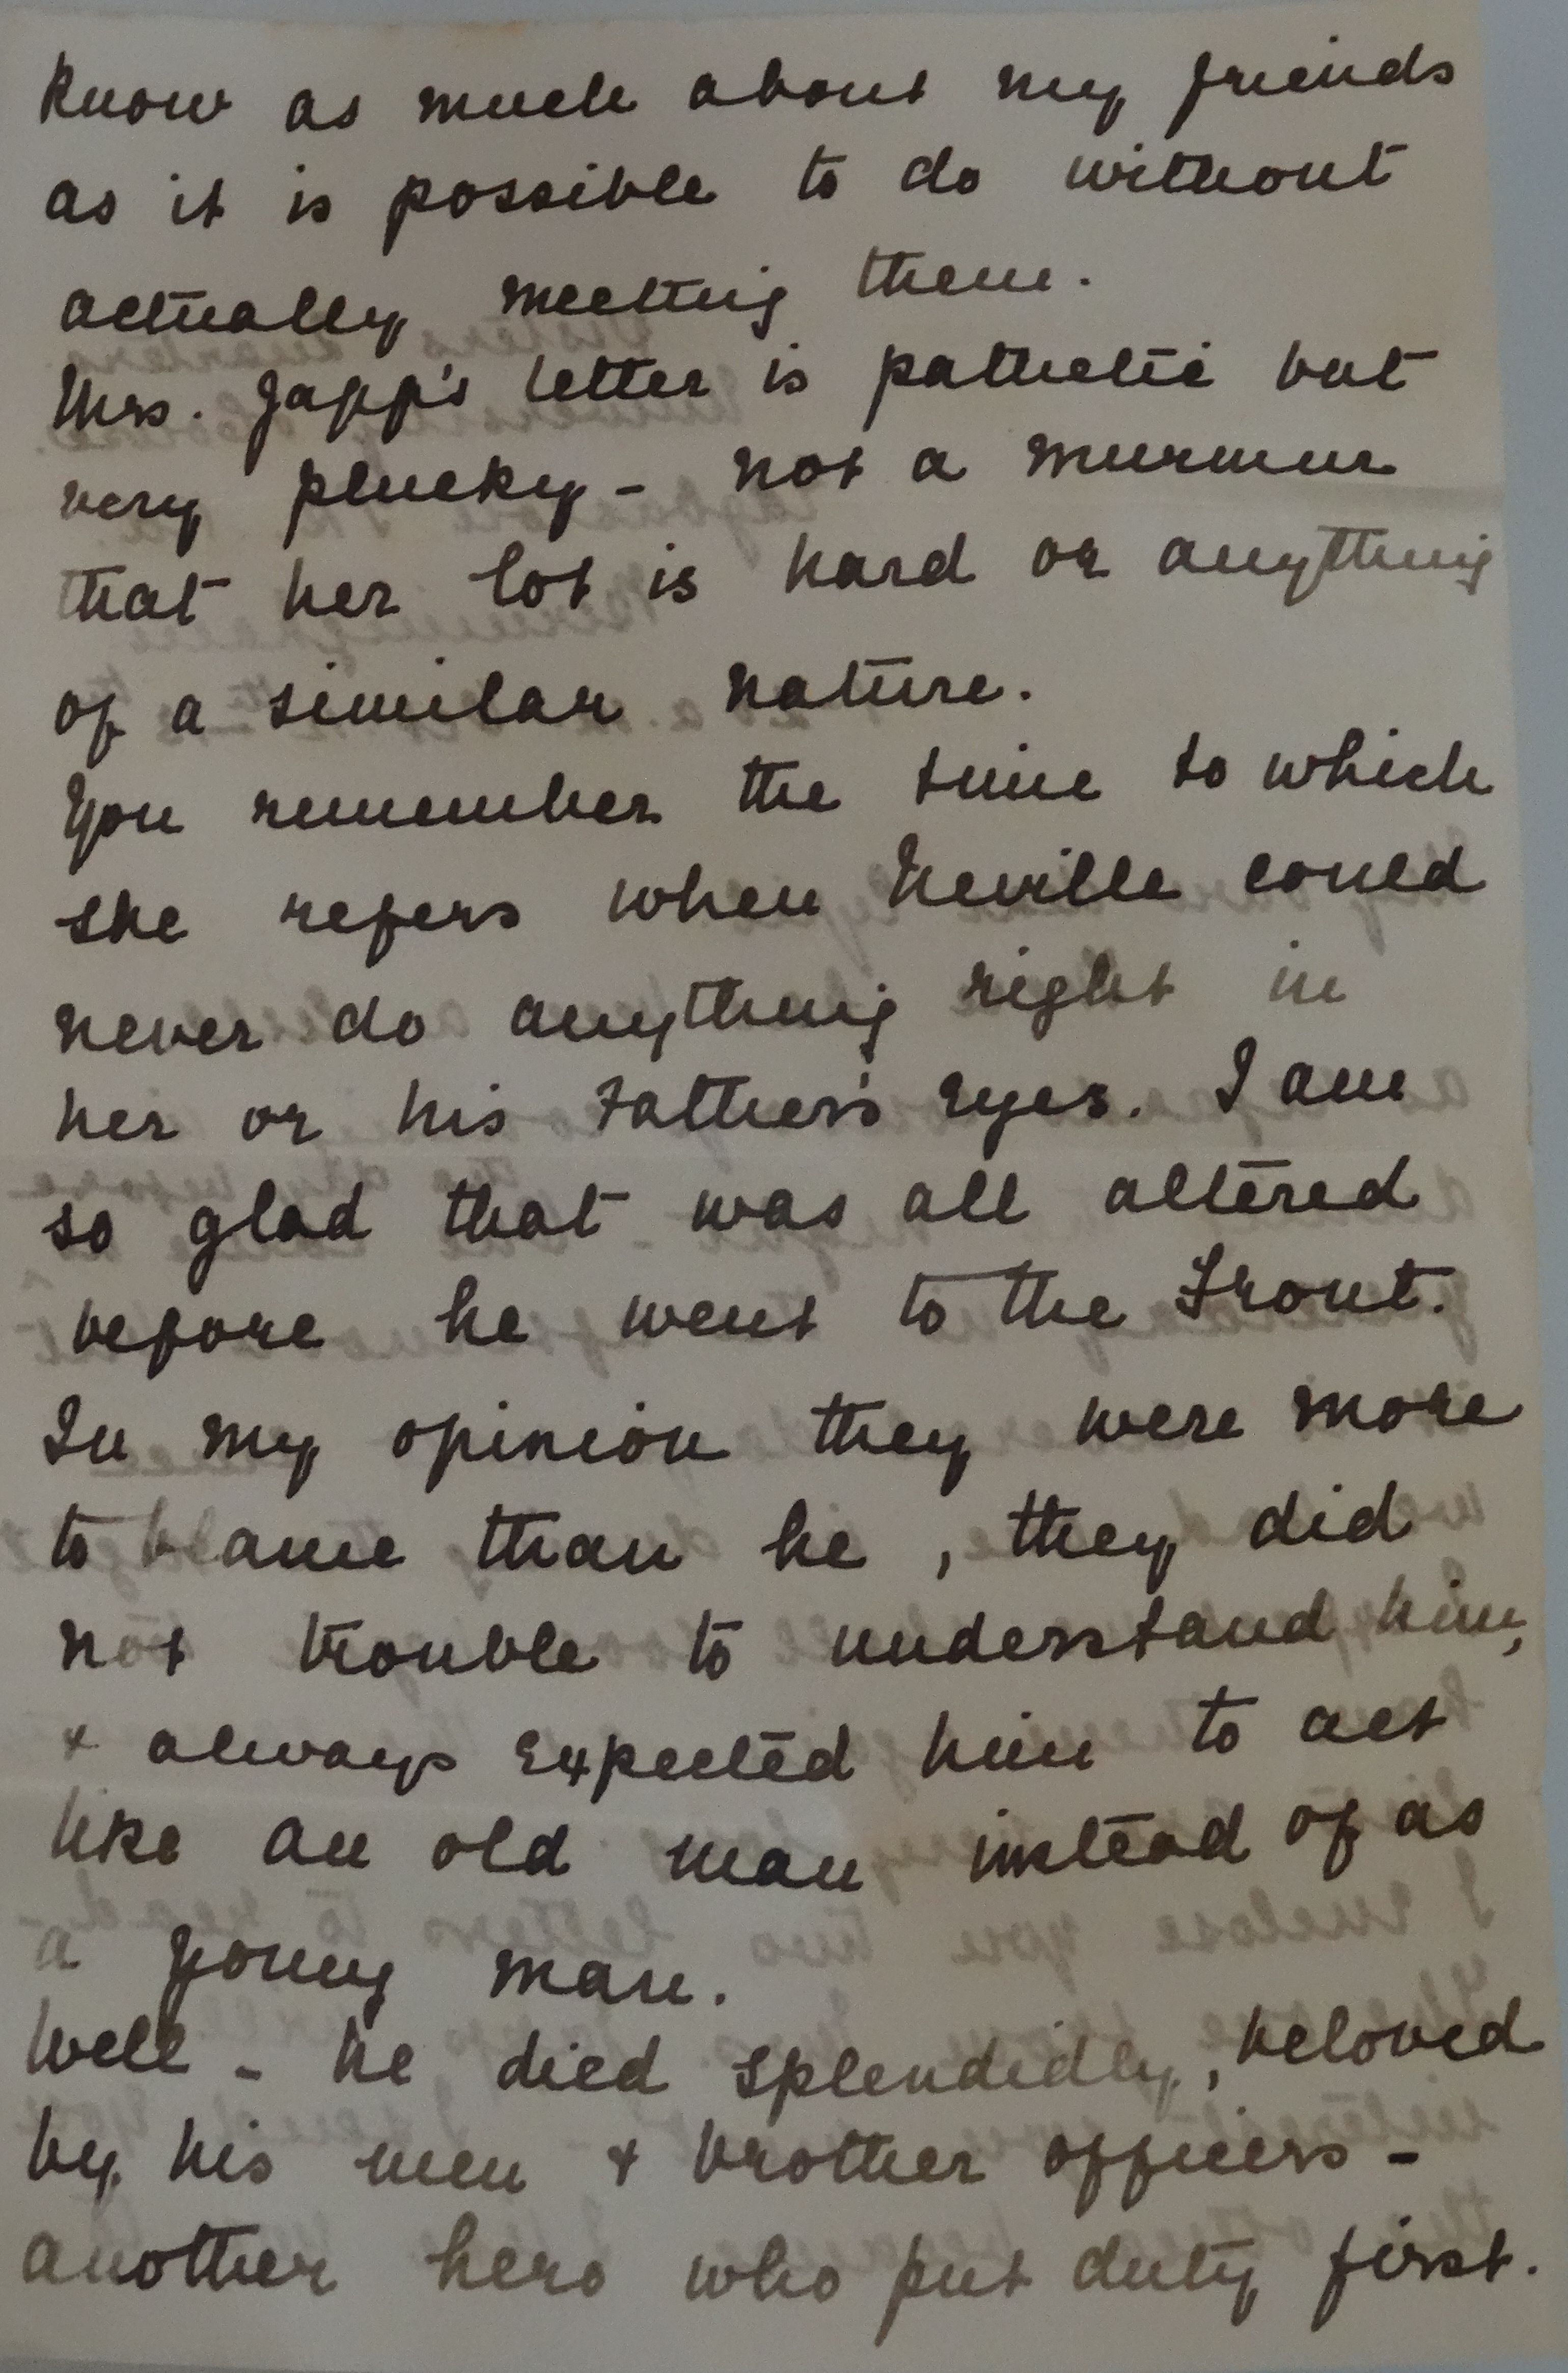 know as much about my friends
as it is possible to do without
actually meeting them.
Mrs. Japp's letter is pathetic but
very plucky - not a murmur
that her lot is hard or anything
of a similar nature.
You remember the time to which
she refers when Neville could
never do anything right in
her or his Father's eyes. I am
so glad that was all altered
before he went to the Front.
In my opinion they were more
to blame than he, they did
not trouble to understand him,
& always expected him to act
like an old man instead of as
a young man.
Well - he died splendidly, beloved
by his men & brother officers -
another hero who put duty first.